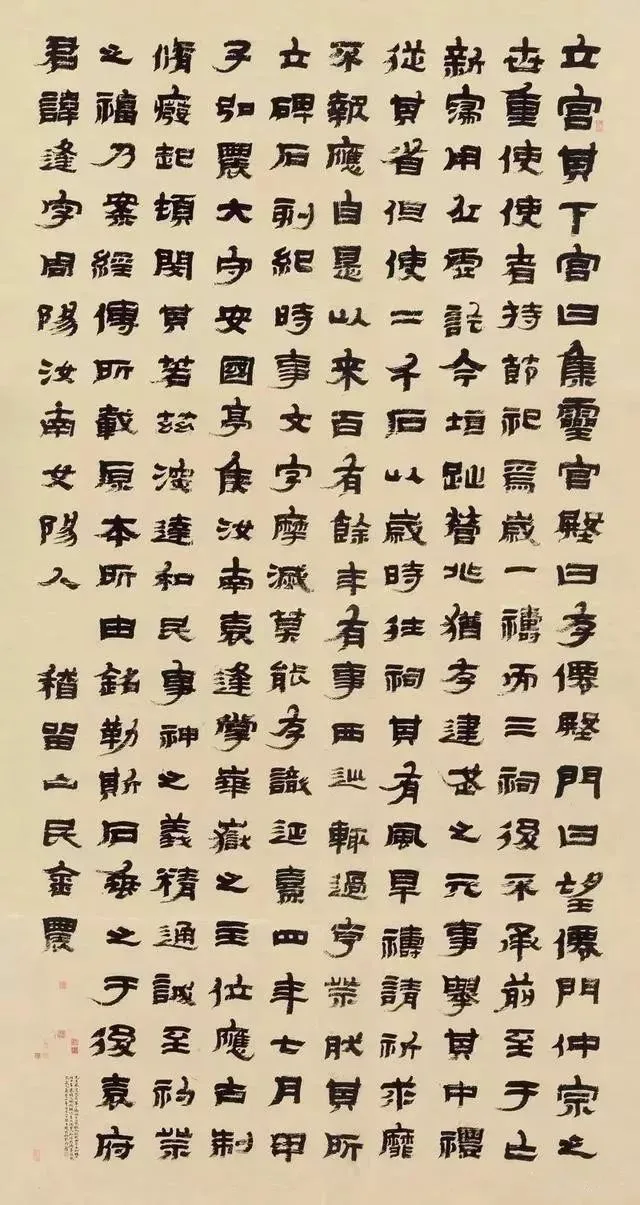 立宮其下宮曰集靈宮殿曰存僊殿門曰望僊門仲宗之
世重使使者持節祀焉歲一禱而三祠後不承前至于亡
新寖用丘虛訖今垣趾營兆猶存建武之元事舉其中禮
從其省但使二千石以歲時往祠其有風旱禱請祈求靡
不報應自是以來百有餘年有事西巡輒過享祭然其所
立碑石刻紀時事文字摩滅莫能存識延熹四年七月甲
子弘農大守安國亭侯汝南袁逢掌華嶽之主位應古制
脩廢起頓閔其若茲深達和民事神之義精通誠至礿祭
之福乃案經傳所載原本所由銘勒斯石垂之于後袁府
君諱逢字周陽汝南女陽人 稽留山民金農